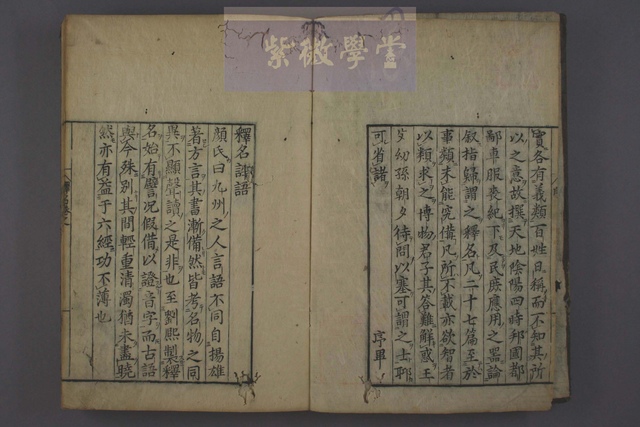 紫微學堂
實各有義類百姓日稱而不知其所
以之意故撰天地陰陽四時邦國都
鄙車服喪紀下及民庶應用之器論
叙指歸謂之釋名凡二十七篇至於
事類未能究備凡所不載亦欲智者
以類求之博物君子其答難解惑王
父幼孫朝夕侍問以塞可謂之士聊
可省諸 序畢
釋名諺語
顔氏曰九州之人言語不同自揚雄
著方言其書漸備然皆考名物之同
異不顯聲讀之是非也至劉熙製釋
名始有譬况假借以證音字而古語
與今殊別其間輕重清濁猶未盡曉
然亦有益于六經功不薄也